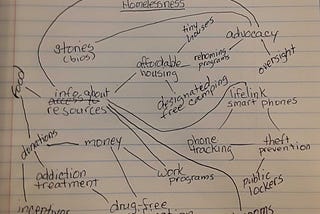 Homelessness
tiny
houses
advocacy
stories
(bios)
affordable
housing
rehoming
programs
oversight
food
designated
free camping
info about
resources
lifelink
smart phones
donations
money
phone
tracking
theft
prevention
work
programs
public
lockers
addiction
treatment
drug-free
incentives